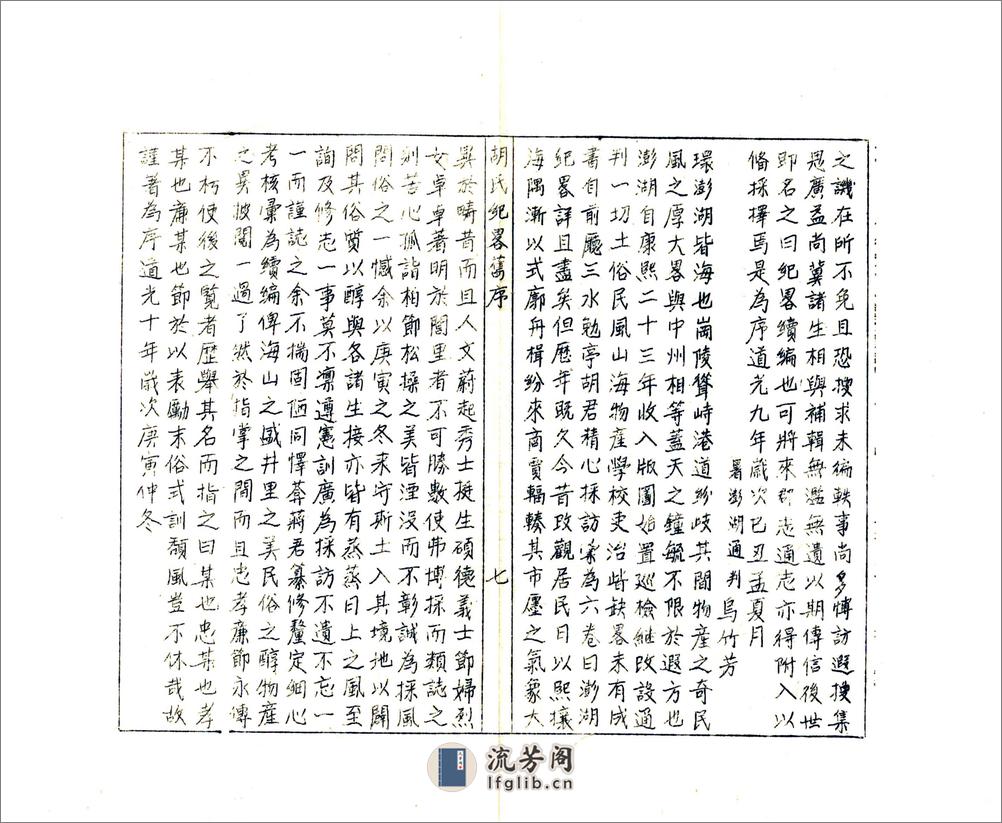 之譏在所不免且恐搜求未徧軼事尚多博訪遐搜集
思廣益尚冀諸生相與補輯無濫無遺以期傳信後世
即名之曰紀畧續編也可將來郡志通志亦得附入以
俻採擇焉是為序道光九年歲次己丑孟夏月
署澎湖通判烏竹芳
環澎湖皆海也崗陵聳峙港道紛岐其間物產之奇民
風之厚大畧與中州相等蓋天之鐘毓不限於遐方也
澎湖自康熙二十三年收入版圖始置巡檢継改設通
判一切土俗民風山海物產學校吏治皆缺畧未有成
書自前廳三水勉亭胡君精心採訪彙為六卷曰澎湖
紀畧詳且盡矣但歷年既久今昔改觀居民日以熙攘
海隅漸以式廓舟楫紛來商賈輻輳其市廛之氣象大
胡氏紀畧舊序
七
異於疇昔而且人文蔚起秀士挺生碩德義士節婦烈
女卓卓著明於閭里者不可勝數使弗博採而類誌之
則苦心孤詣柏節松操之美皆湮没而不彰誠為採風
問俗之一憾余以庚寅之冬来守斯土入其境地以闢
問其俗質以醇與各諸生接亦皆有蒸蒸日上之風至
詢及修志一事莫不凛遵憲訓廣為採訪不遺不忘一
一而謹誌之余不揣固陋同懌葊蔣君纂修釐定細心
考核彙為續編俾海山之盛井里之美民俗之醇物產
之異披閱一過了然於指掌之間而且忠孝廉節永傳
不朽使後之覽者歷舉其名而指之曰某也忠某也孝
某也廉某也節於以表勵末俗式訓頽風豈不休哉故
謹著為序道光十年歲次庚寅仲冬
流芳阁
lfglib.cn